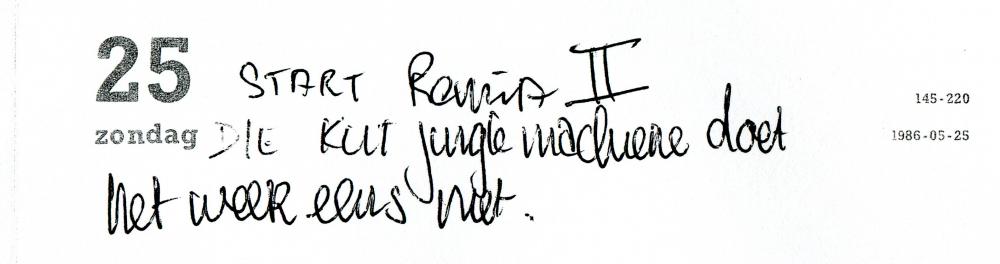 25
START Ramia II
145-220
zondag DIE KUT jungle machiene doet
1986-05-25
het weer eens niet.